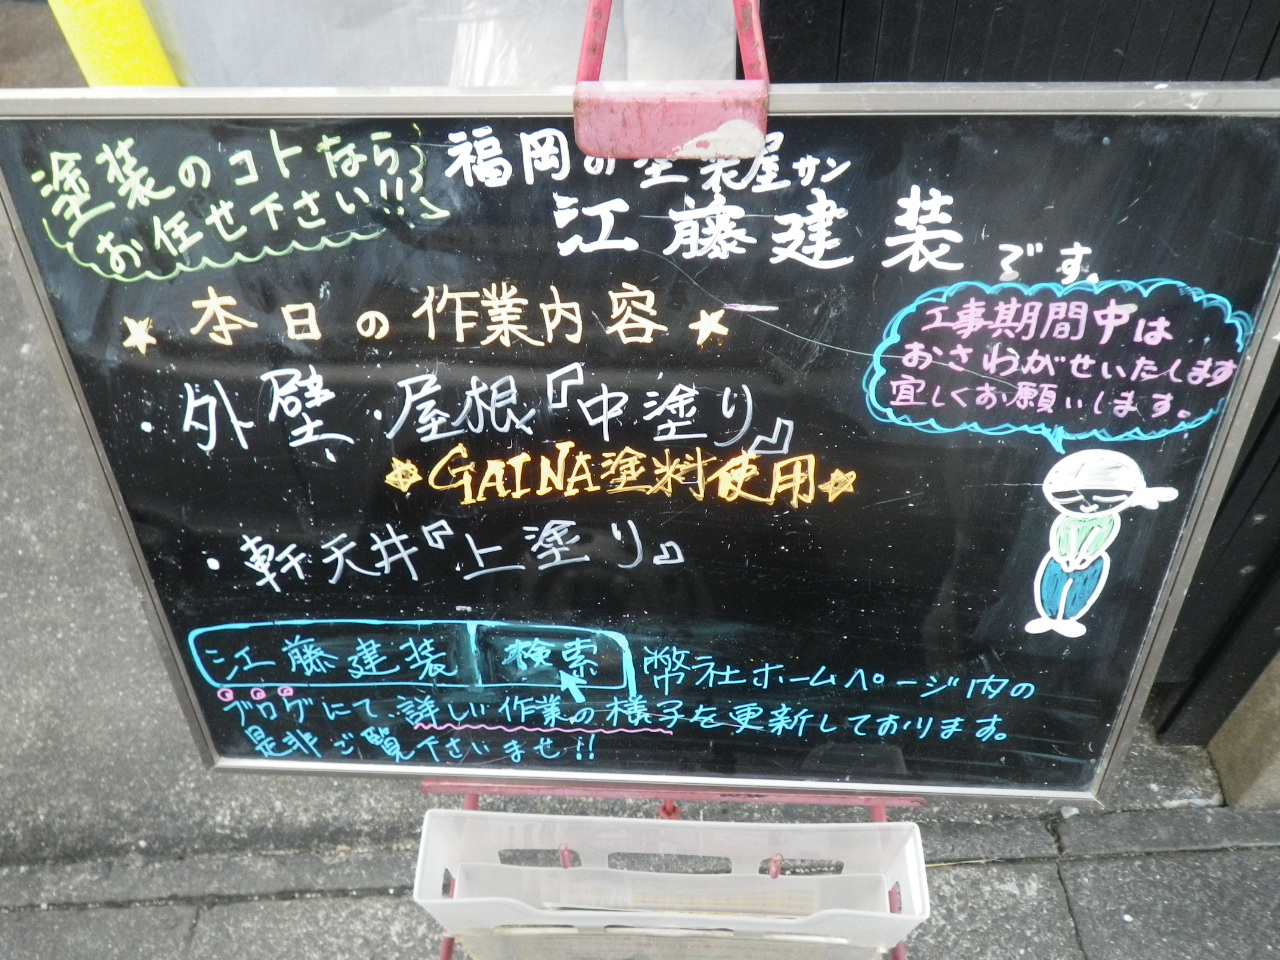 塗装のコトなら
お任せ下さい!!
福岡の塗装屋サン
江藤建装です。
★本日の作業内容★
・外壁・屋根『中塗り』
★GAINA塗料使用★
・軒天井『上塗り』
工事期間中は
おさわがせいたします
宜しくお願いします。
江藤建装 検索 幣社ホームページ内の
ブログにて、詳しい作業の様子を更新しております。
是非ご覧下さいませ!!